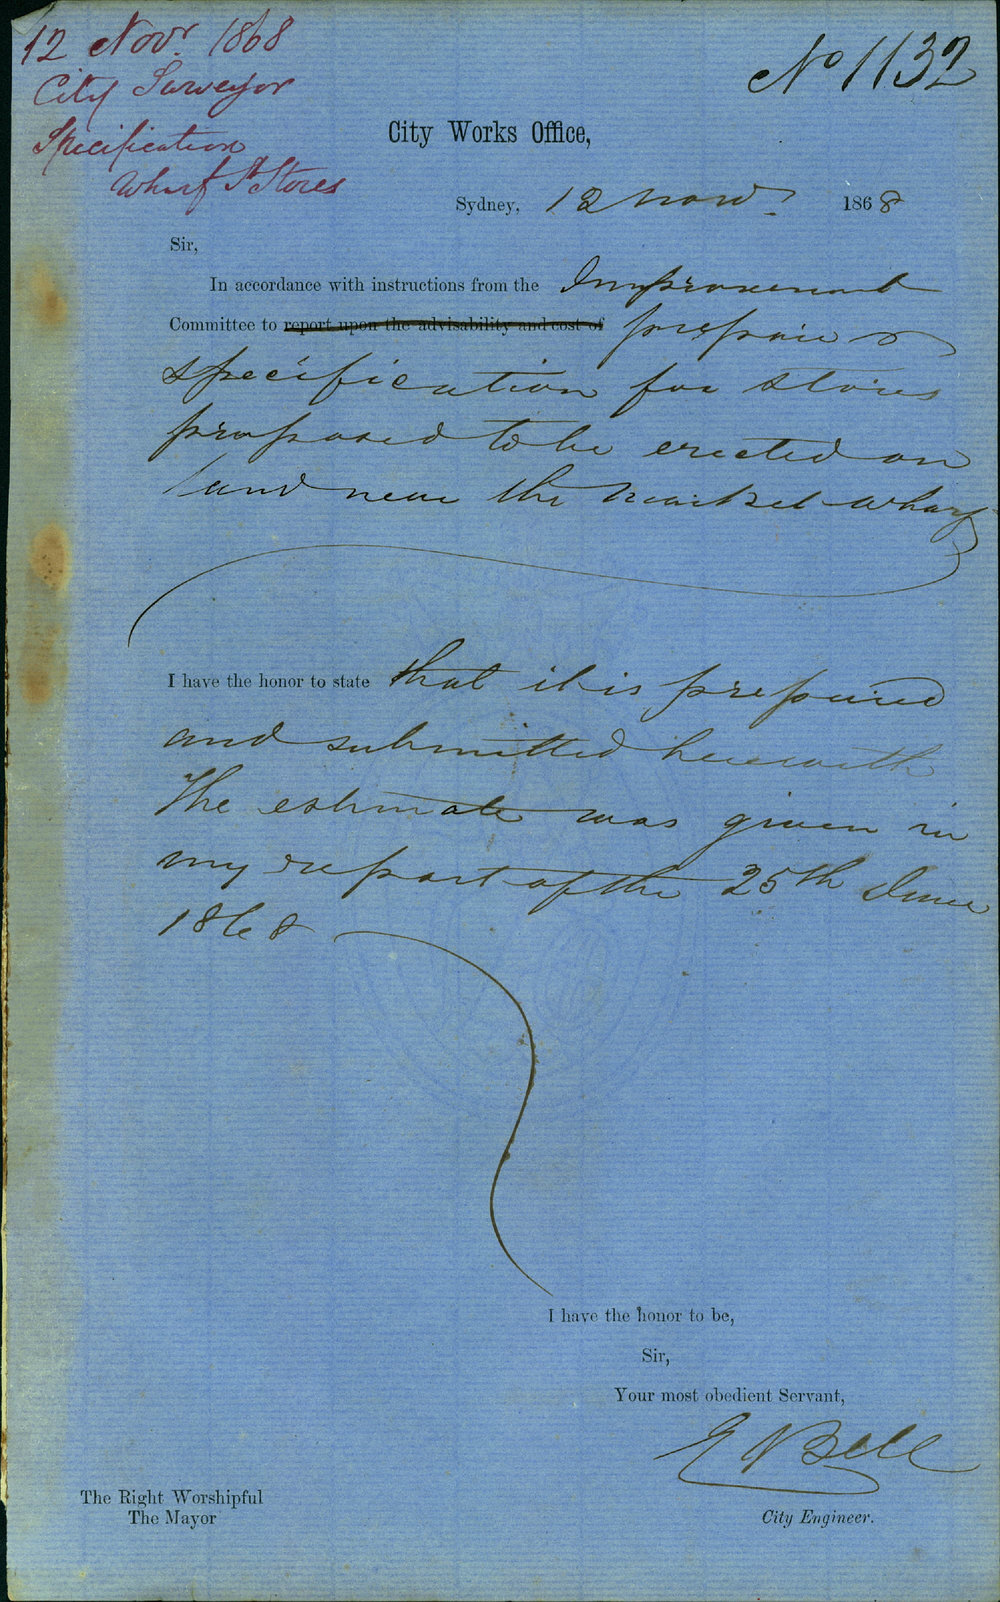 12 Novr. 1868
City Surveyor
Specification
Wharf St Stores
No 1132
City Works Office,
Sydney, 12 Nov. 1868
Sir,
In accordance with instructions from the Improvement
Committee to report upon the advisability and cost of prepare a
specification for stores
proposed to be erected on
land near the Market Wharf
I have the honor to state that it is prepared
and submitted herewith
The estimate was given in
my report of the 25th June
1868
I have the honor to be,
Sir,
Your most obedient Servant,
E Bell
City Engineer.
The Right Worshipful
The Mayor